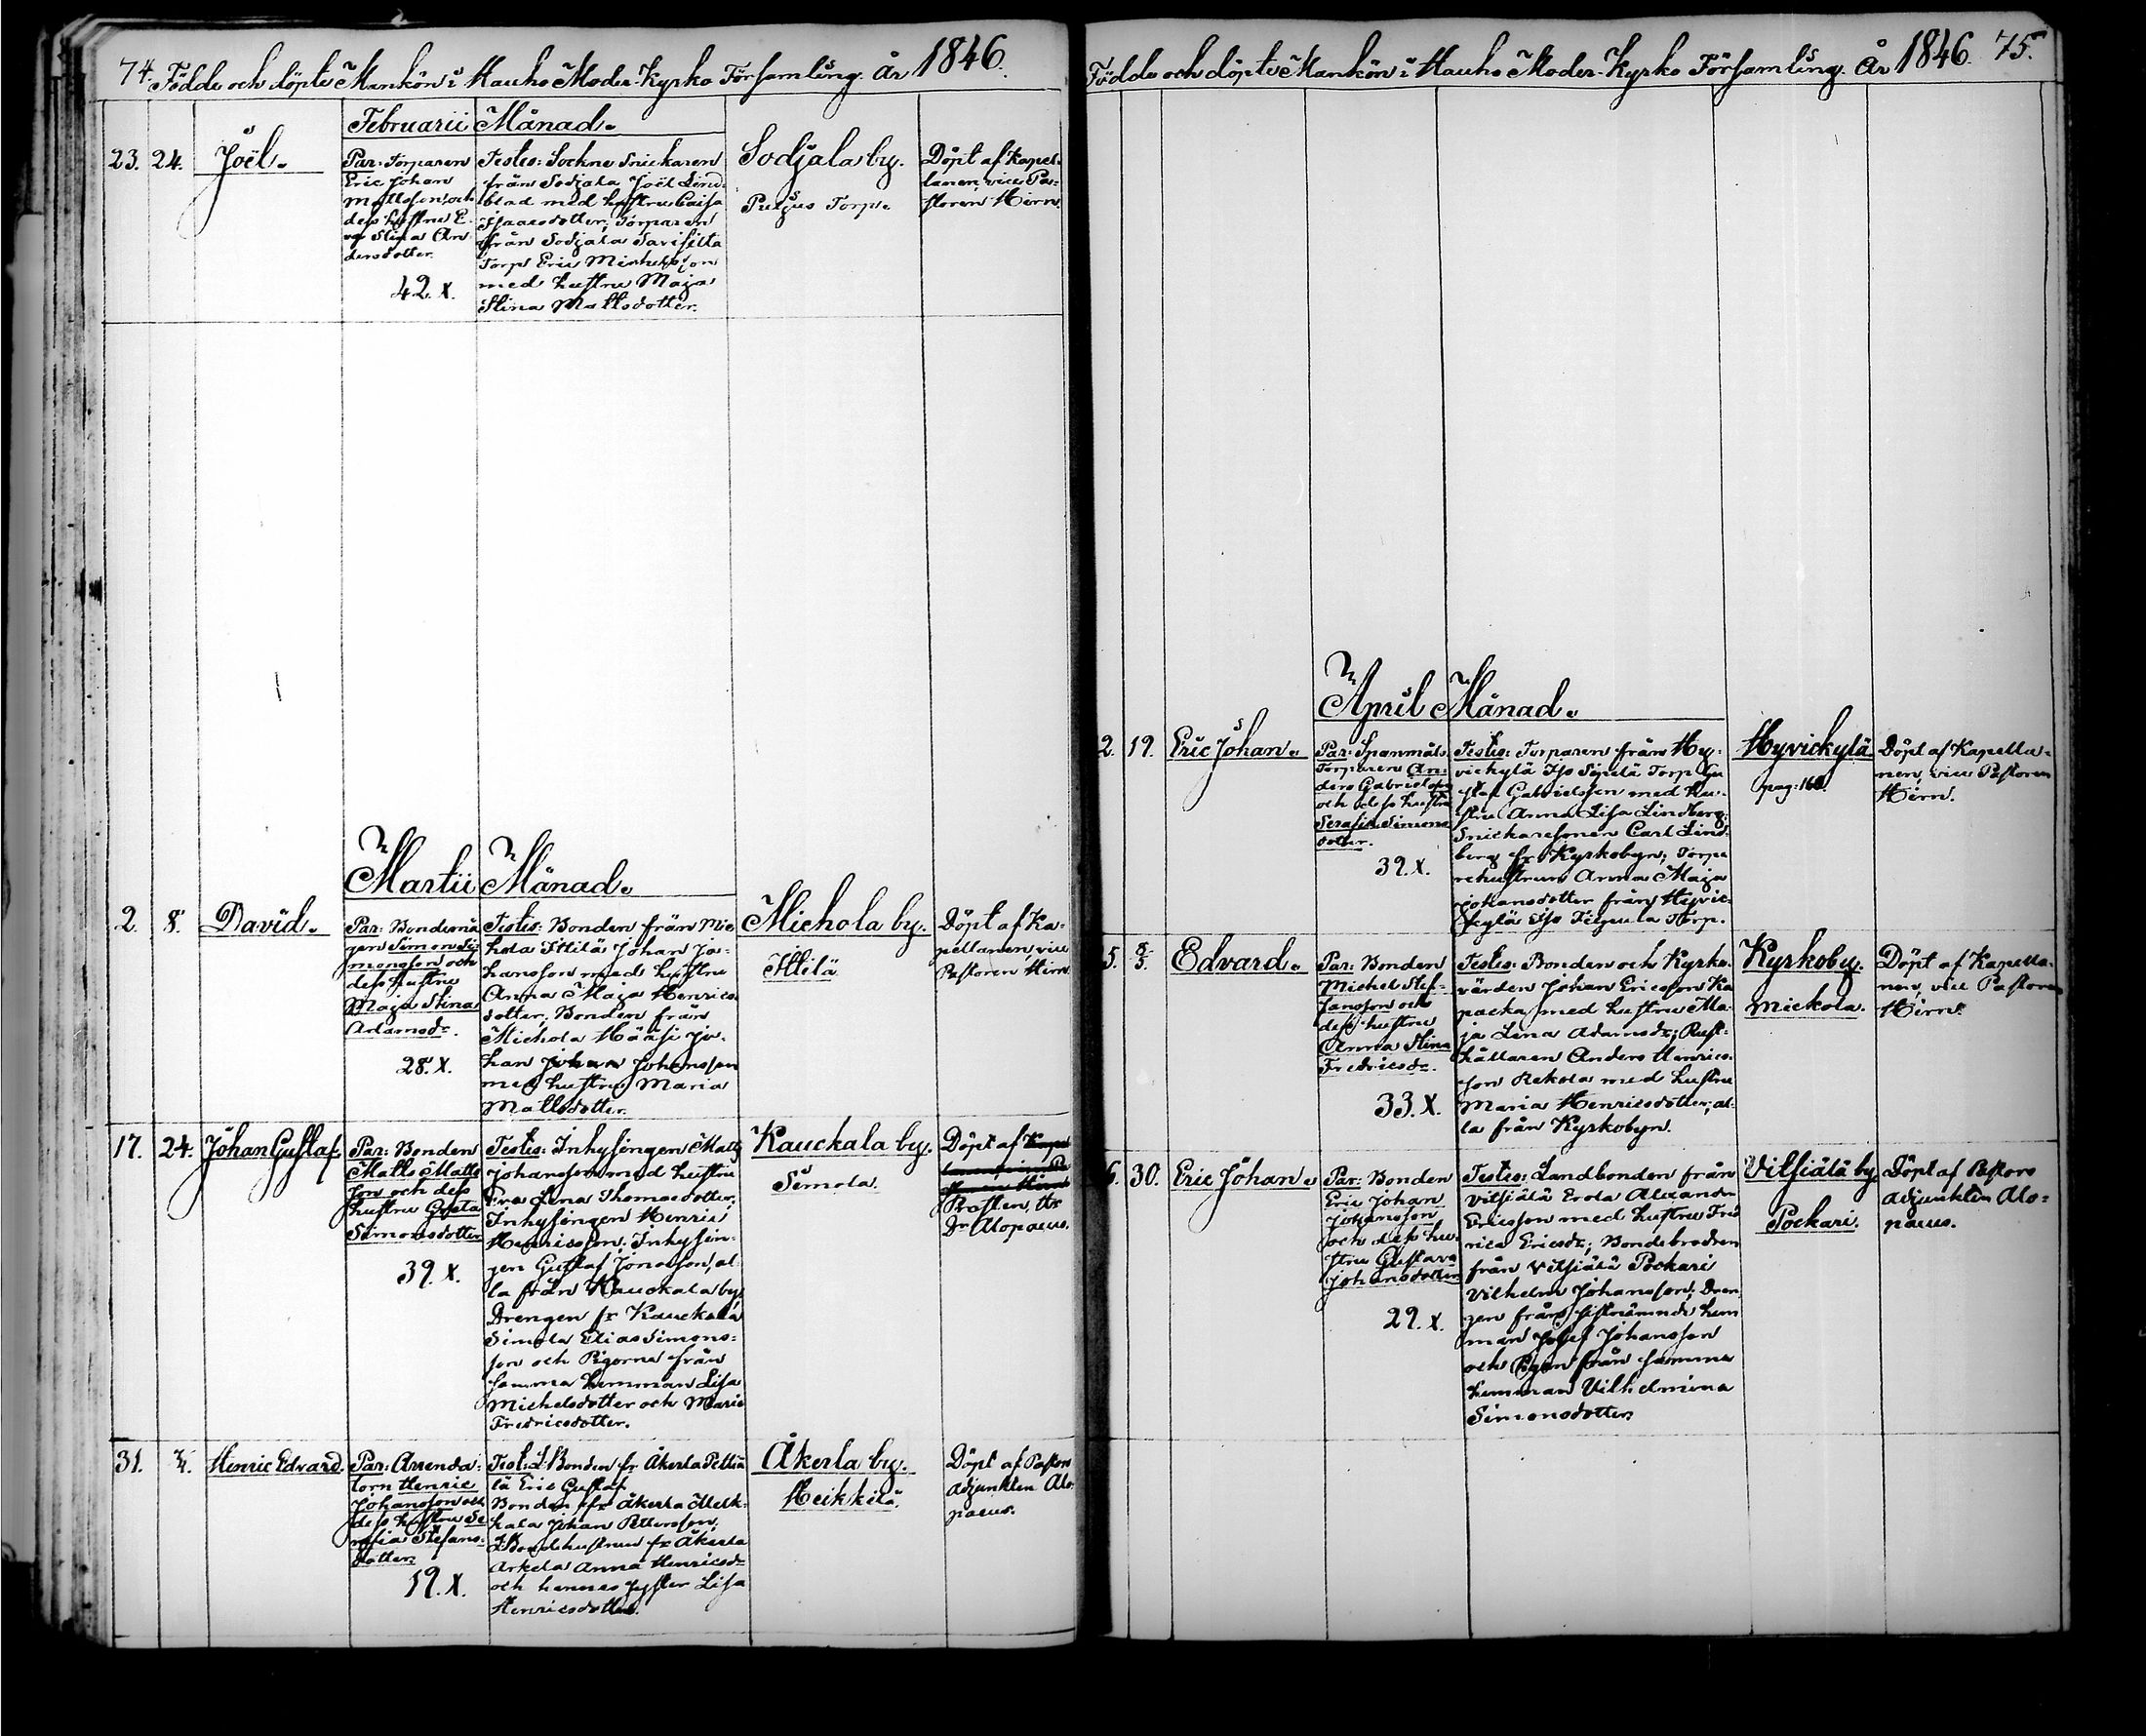 74. Födde och döpte Mankön i Hauho Moder-Kyrko Församling. År 1846.
Februarii Månad.
23. 24. Joël.
Par: Torparen
Eric Johan
Mattsson, och
dess hustru E-
va Stina An-
dersdotter.
42. X.
Testes: Sockne Snickaren
från Sodjala Joël Lind-
blad med hustru Caisa
Isaacsdotter; Torparen
från Sodjala Savisilta
Torp Eric Michelsson
med hustru Maja
Stina Mattsdotter.
Sodjala by.
Torp.
Döpt af Kapel-
lanen, vice Pa-
storen Hirn.
Martii Månad.
2. 8. David.
Par: Bondemå-
gen Simon Si-
monsson och
dess hustru
Maja Stina
Adamsdr.
28. X.
Testes: Bonden från Mic-
hola Ittilä Johan Jo-
hansson med hustru
Anna Maja Henrics-
dotter; Bonden från
Michola Määsi Jo-
han Johan Johansson
med hustru Maria
Mattsdotter.
Michola by.
Ittilä
Döpt af Ka-
pellanen, vice
Pastoren Hirn.
17. 24. Johan Gustaf.
Par: Bonden
Matts Matts-
son och dess
hustru Greta
Simonsdotter
39. X.
Testes: Inhysingen Matts
Johansson med hustru
Eva Lena Thomasdotter;
Inhysingen Henric
Henricsson; Inhysin-
gen Gustaf Jonasson, al-
la från Kauckala by;
Drengen fr Kauckala
Simola Elias Simons-
son och Pigorna från
samma hemman Lisa
Michelsdotter och Maria
Fredricsdotter.
Kauckala by.
Simola.
Döpt af Kapel-
lanen, vice Pa-
storen Hirn
Prosten,
Dr Alopaeus.
31. 7/4. Henric Edvard.
Par: Arrenda-
torn Henric
Johansson och
dess hustru Se-
rafia Stefans-
dotter.
19. X.
Test: L.Bonden fr Åkerla Pettia-
lä Eric Gustaf
Bonden fr Åkerla
Johan Pettersson;
L.Bondehustrun fr Åkerla
Arkela Anna Henricsdr
och hennes syster Lisa
Henricsdotter.
Åkerla by.
Heikkilä.
Döpt af Pastors
adjunkten Alo-
paeus.
Födde och döpte Mankön i Hauho Moder-Kyrko Församling. År 1846. 75.
April Månad.
2. 19. Eric Johan.
Par: Spanmåls
Torparen An-
ders Gabrielsson
och dess hustru
Serafia Simons-
dotter.
39. X.
Testes: Torparen från Hy-
vickylä Iso Torp Gu-
staf Gabrielsson med hu-
stru Anna Lisa Lindberg;
Snickaresonen Carl Lind-
berg fr Kyrkobyn; Torpa-
rehustrun Anna Maja
Johansdotter från Hyvic-
kylä Iso Torp.
Hyvickylä
pag: 160.
Döpt af Kapella-
nen, vice Pastoren
Hirn.
5. 8/5. Edvard.
Par: Bonden
Michel Stef-
fansson och
dess hustru
Anna Stina
Fredricsdr.
33. X.
Testes: Bonden och Kyrko-
värden Johan Ericsson Ka-
packa med hustru Ma-
ja Lena Adamsdr; Rust-
hållaren Anders Henrics-
son Rekola med hustru
Maria Henricsdotter, al-
la från Kyrkobyn.
Kyrkoby.
Mickola.
Döpt af Kapella-
nen, vice Pastoren
Hirn.
6. 30. Eric Johan.
Par: Bonden
Eric Johan
Johansson
och dess hu-
stru Gustava
Johansdotter
29. X.
Testes: Landbonden från
Vitsiälä Erola Alexander
Ericsson med hustru Fred-
rica Ericsdr; Bondebrodren
från Vitsiälä Pockari
Vilhelm Johansson; Dren-
gen från sistnämnde hem-
man Josef Johansson
och Pigan från samma
hemman Vilhelmina
Simonsdotter.
Vitsiälä by
Pockari.
Döpt af Pastors
adjunkten Alo-
paeus.